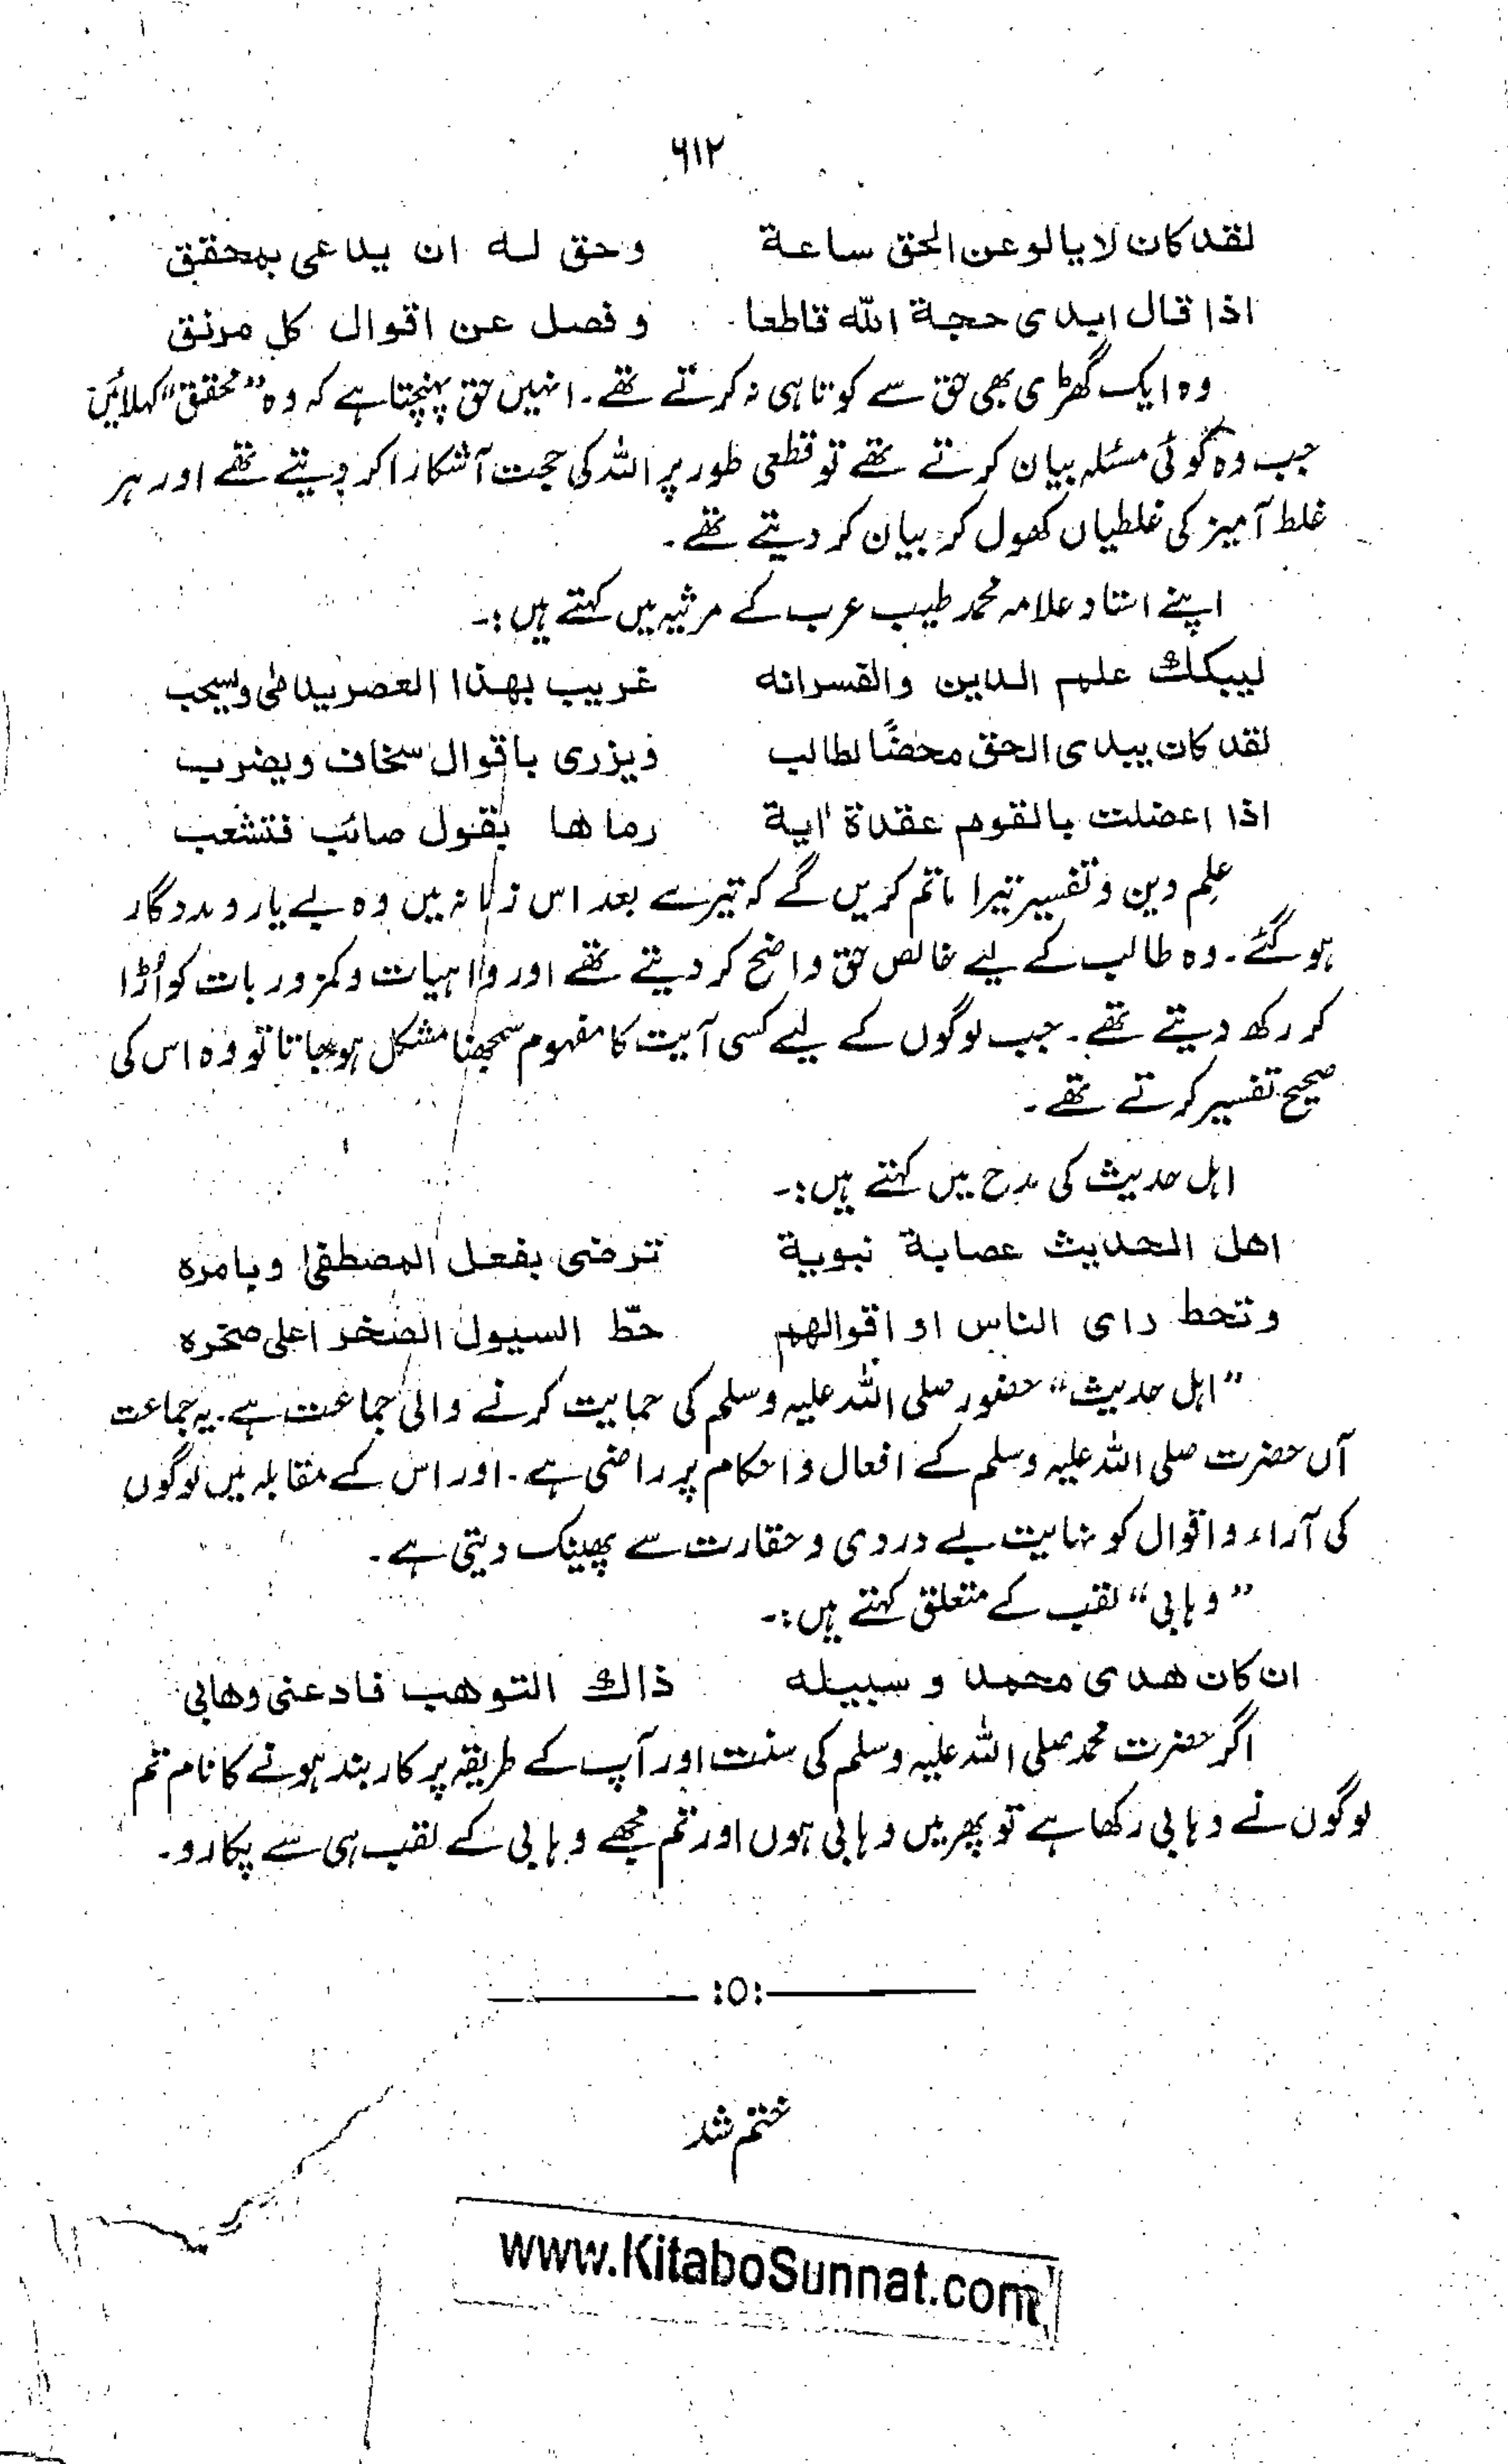 ۶۱۲
لقد کان لا یالو عن الحق ساعة وحق له ان یدعی بمحقق
اذا قال ابدی حجة اللہ قاطعا و فصل عن اقوال کل مرنق
وہ ایک گھڑی بھی حق سے کوتاہی نہ کرتے تھے۔ انہیں حق پہنچتا ہے کہ وہ ”محقق“ کہلائیں
جب وہ کوئی مسئلہ بیان کرتے تھے تو قطعی طور پر اللہ کی حجت آشکارا کر دیتے تھے اور ہر
غلط آمیز کی غلطیاں کھول کر بیان کر دیتے تھے۔
اپنے استاد علامہ محمد طیب عرب کے مرثیہ میں کہتے ہیں:۔
لیبکک علم الدین والفسرانه غریب بهذا العصر یدمی ویسحب
لقد کان یبدی الحق محضًا لطالب ویزری باقوال سخاف ویضرب
اذا اعضلت بالقوم عقدة اٰیة رماها بقول صائب فتشعب
علم دین و تفسیر تیرا ماتم کریں گے کہ تیرے بعد اس زمانہ میں وہ بے یار و مددگار
ہو گئے۔ وہ طالب کے لیے خالص حق واضح کر دیتے تھے اور واہیات و کمزور بات کو اُڑا
کر رکھ دیتے تھے۔ جب لوگوں کے لیے کسی آیت کا مفہوم سمجھنا مشکل ہو جاتا تو وہ اس کی
صحیح تفسیر کرتے تھے۔
اہل حدیث کی مدح میں کہتے ہیں:۔
اهل الحدیث عصابة نبویة ترضی بفعل المصطفیٰ وبامره
وتحط رای الناس او اقوالهم حطّ السیول الصخر اعلی صخره
”اہل حدیث“ حضور صلی اللہ علیہ وسلم کی حمایت کرنے والی جماعت ہے۔ یہ جماعت
آں حضرت صلی اللہ علیہ وسلم کے افعال و احکام پر راضی ہے۔ اور اس کے مقابلہ میں لوگوں
کی آراء و اقوال کو نہایت بے دردی و حقارت سے پھینک دیتی ہے۔
”وہابی“ لقب کے متعلق کہتے ہیں:۔
ان کان هدی محمد و سبیله ذالك التوهب فادعنی وهابی
اگر حضرت محمد صلی اللہ علیہ وسلم کی سنت اور آپ کے طریقہ پر کاربند ہونے کا نام تم
لوگوں نے وہابی رکھا ہے تو پھر میں وہابی ہوں اور تم مجھے وہابی کے لقب ہی سے پکارو۔
:o:
ختم شد
www.KitaboSunnat.com